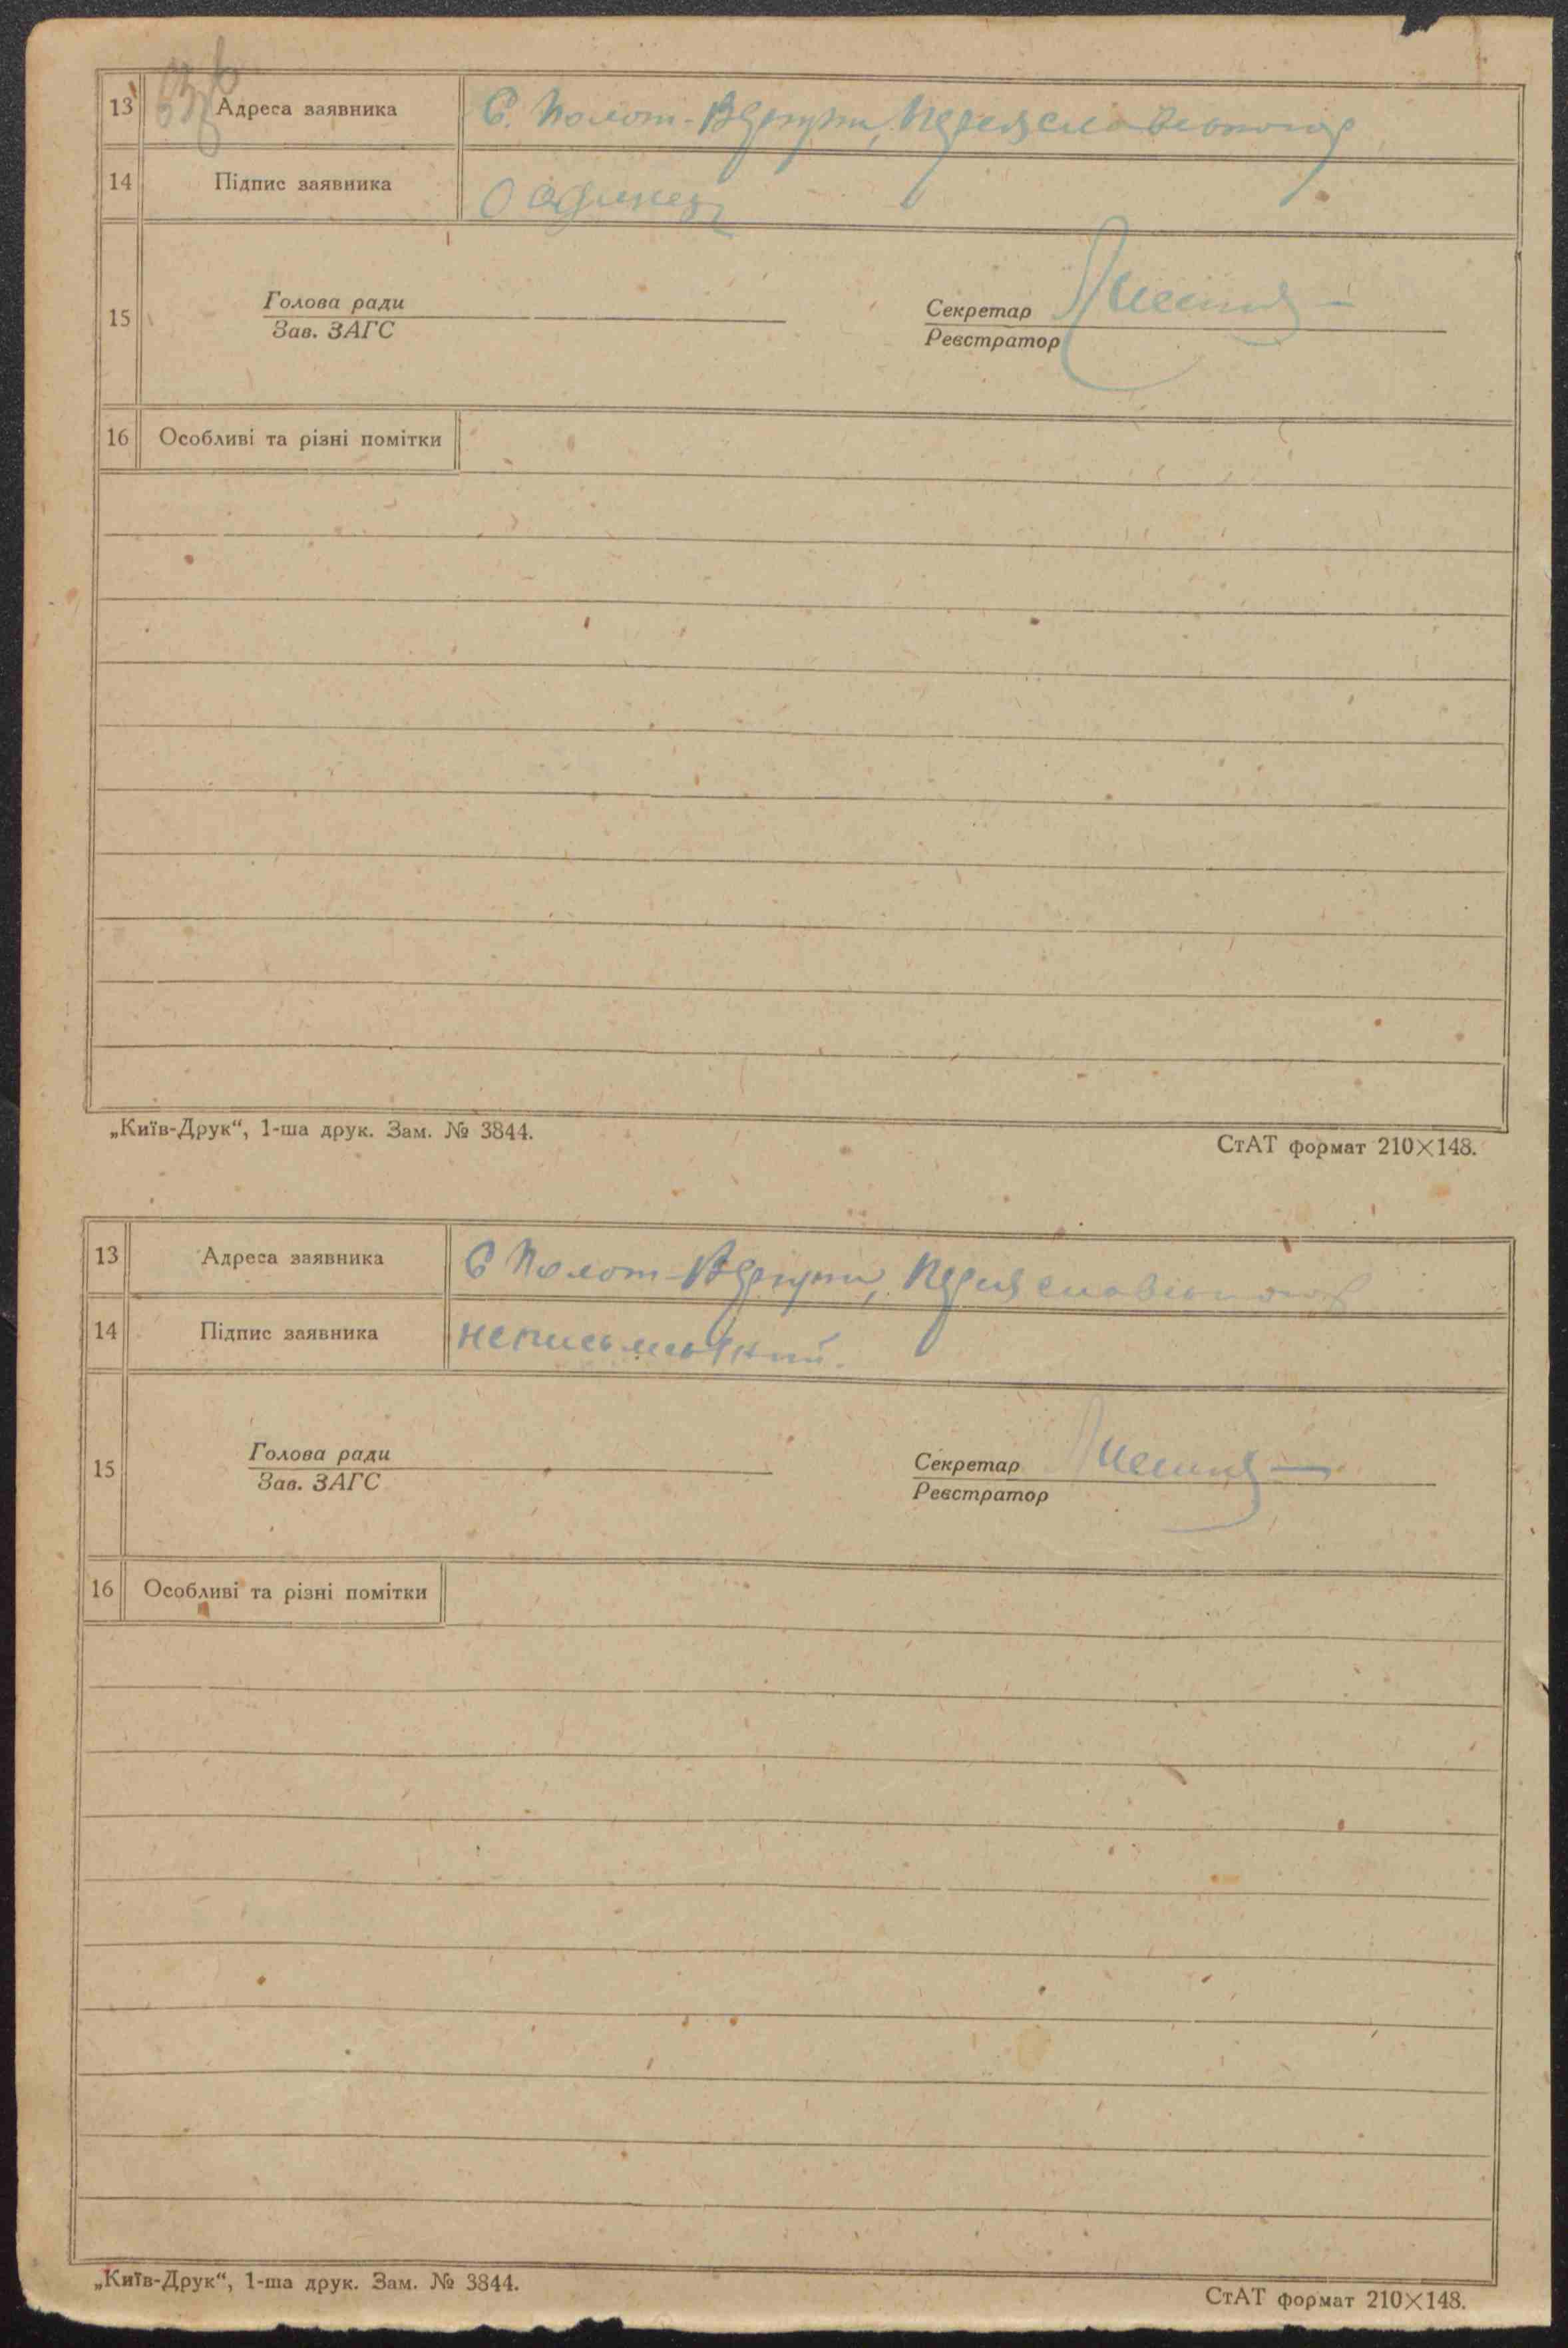 13 Адреса заявника С. Полот-Вергуни, Переяславського
14 Підпис заявника
Голова ради Секретар
15
Зав. ЗАГС Реєстратор
16 Особливі та різні помітки
„Київ-Друк“, 1-ша друк. Зам. № 3844.
СтАТ формат 210×148.
13 Адреса заявника С Полот-Вергуни, Переяславського
14 Підпис заявника неписьменний.
Голова ради Секретар
15
Зав. ЗАГС Реєстратор
16 Особливі та різні помітки
„Київ-Друк“, 1-ша друк. Зам. № 3844.
СтАТ формат 210×148.